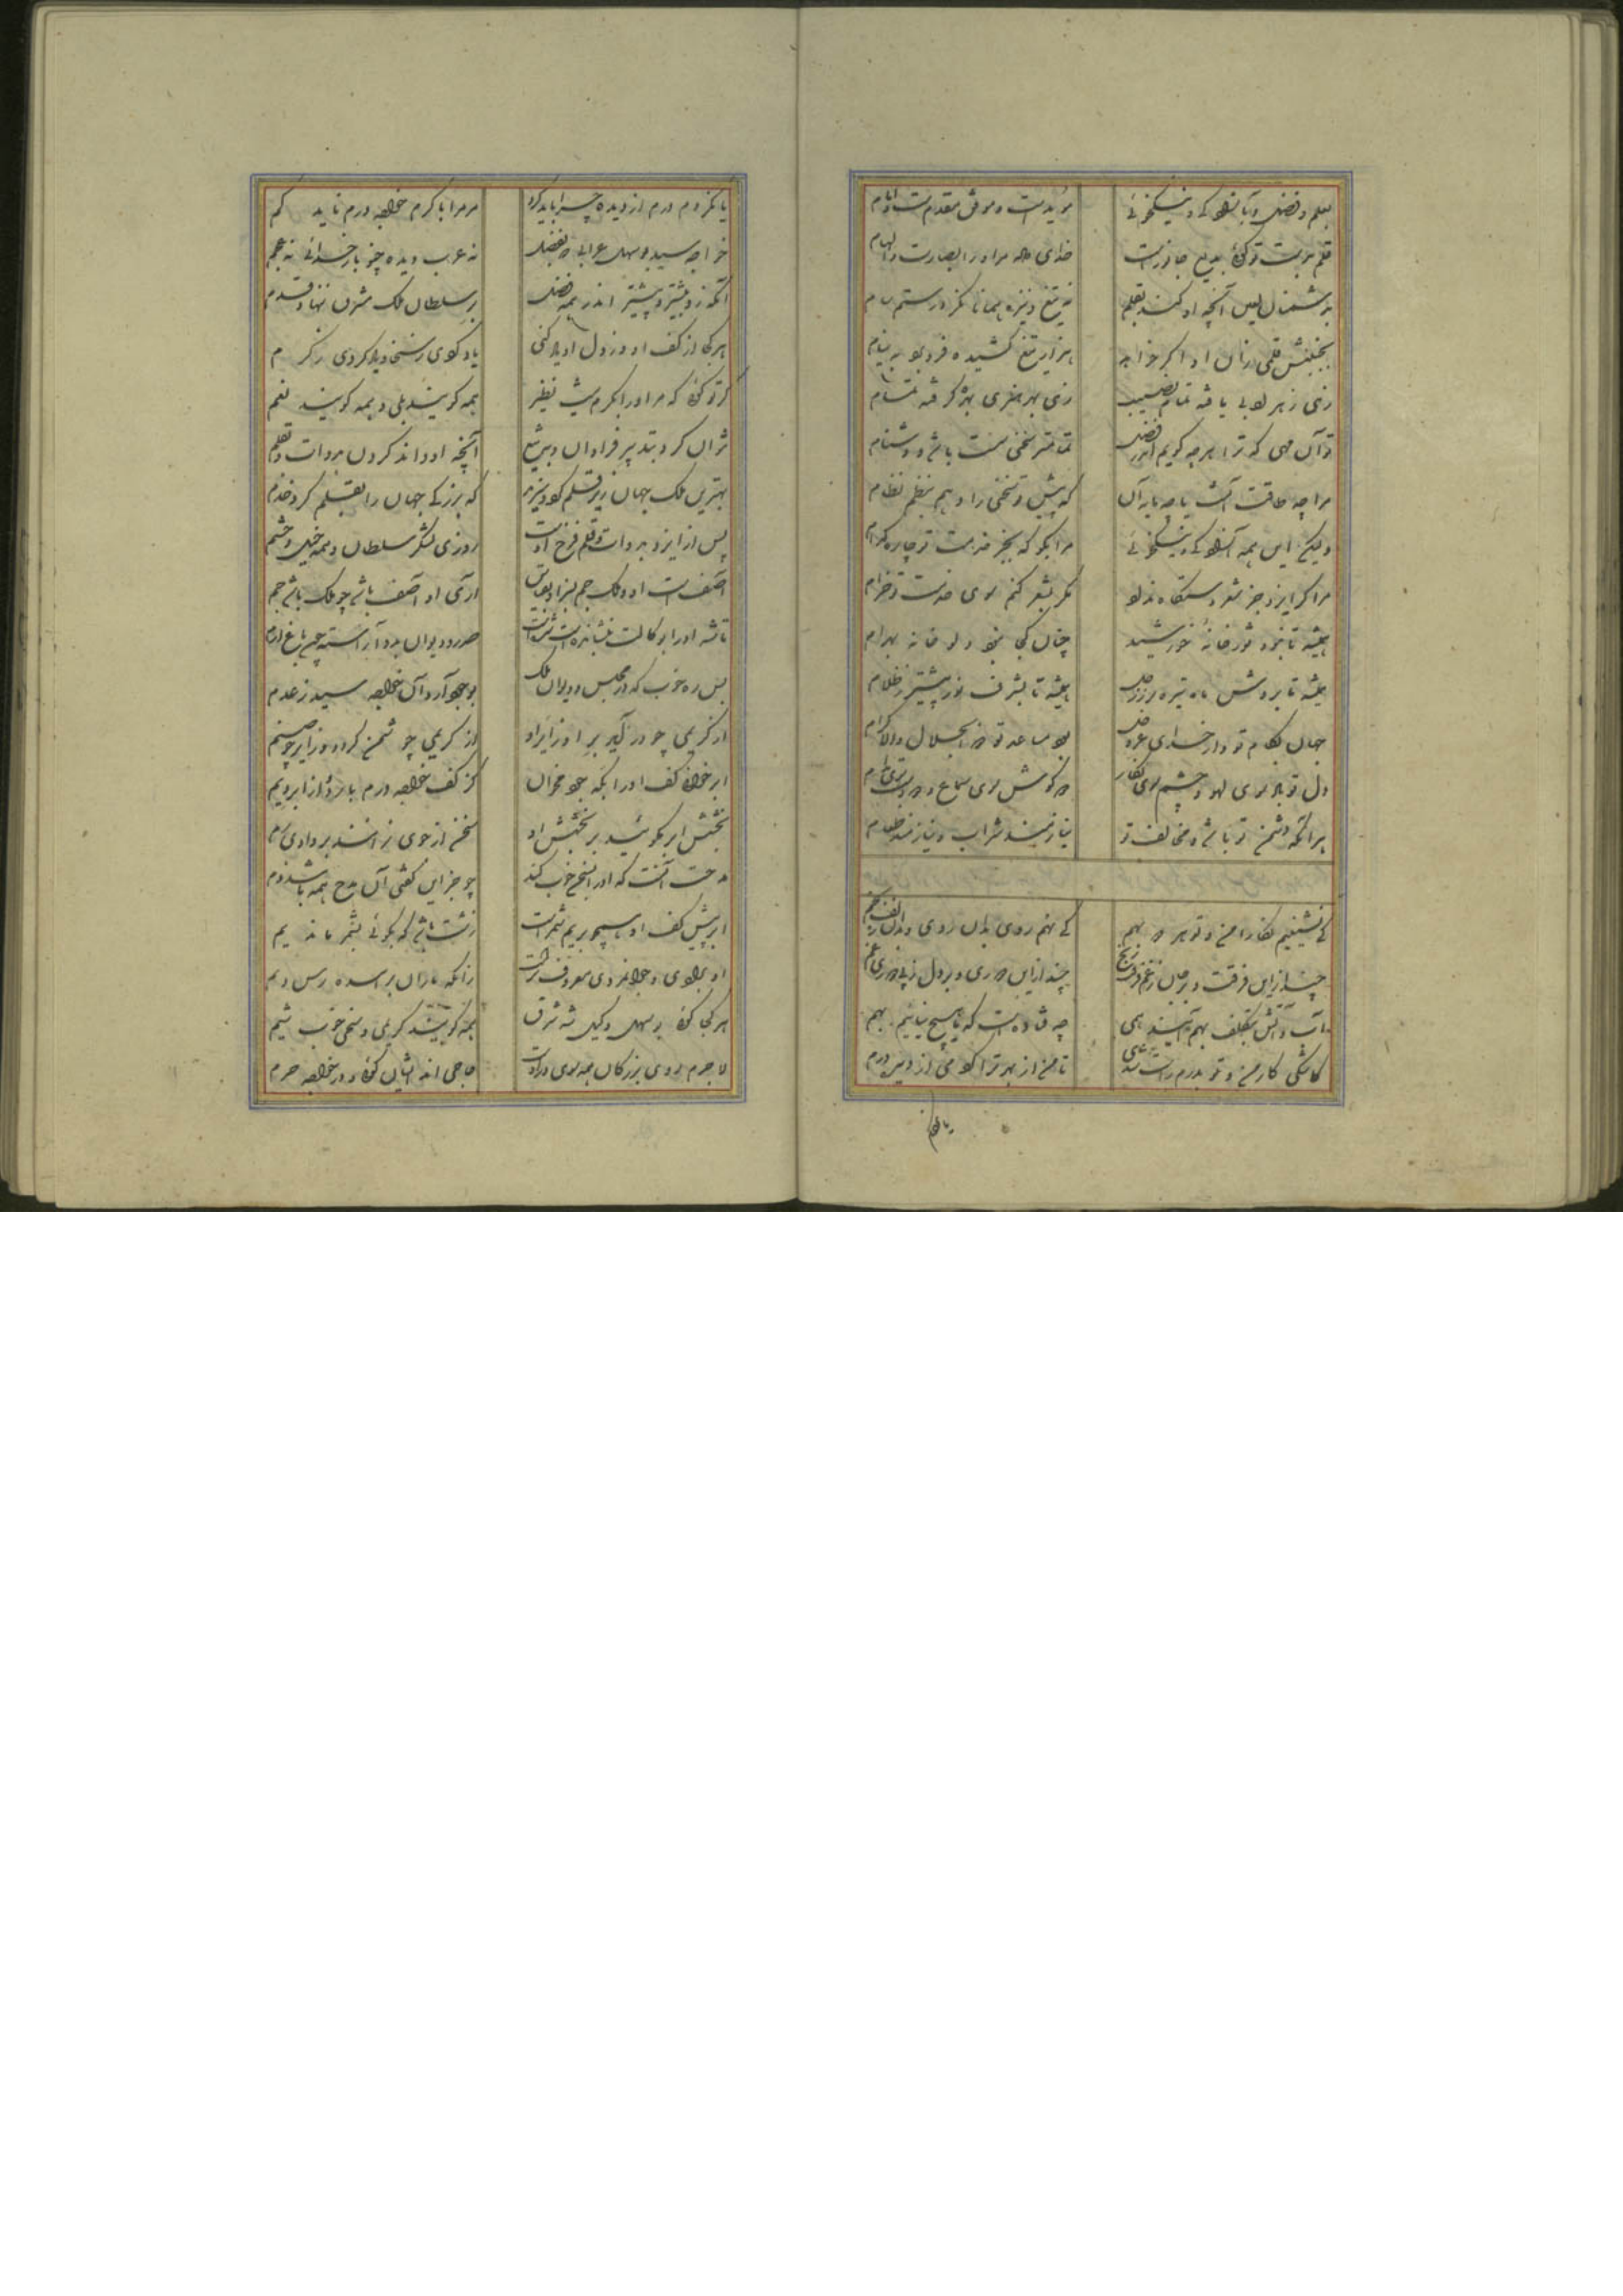 بعلم و فضل و بآزادگی و نیکخوئی مؤیدست و موفق مقدمست و امام
قلم بدست تو گوئی بدیع جانوریست خدای داده مر او را بصارت و الهام
بدشمنان لعین آنچه او کند بقلم به تیغ و نیزه همانا نکرد رستم سام
بجنبش قلمی زان او اگر خواهد هزار تیغ کشیده فرو برد به نیام
زهی ز هر ادبی یافته تمام نصیب زهی بهر هنری بهره گرفته تمام
تو آن مهی که ترا هر چه گویم اندر فضل تمامتر سخنی سست باشد و دشنام
مرا چه طاقت آنست یا چه مایه آن که پیش تو سخنی را دهم بنظم نظام
ولیکن این همه آزادگی و نیکخوئی مرا بگو که بجز خدمت تو چاره کدام
مرا گر ایزد جز شعر دستگاه نداد مگر بشعر کنم سوی خدمت تو خرام
همیشه تا نبود ثور خانه خورشید چنان کجا نبود دلو خانه بهرام
همیشه تا بروش ماه تیزتر ز زحل همیشه تا بشرف نور پیشتر ز ظلام
جهان بکام تو دارد خدای عز و جل بود مساعد تو ذوالجلال والاکرام
دل تو باد سوی لهو و چشم سوی نگار دو گوش سوی سماع و دو دست سوی جام
هر آنکه دشمن تو باشد و مخالف تو نیازمند شراب و نیازمند طعام
کی نشینیم نگارا من و تو هر دو بهم کی نهم روی بدان روی و بدان زلف بخم
چند ازین فرقت و بر جان ز غم فرقت رنج چند ازین دوری و بر دل ز پی دوری غم
آب و آتش بتکلف بهم آیند همی چه فتاده است که ما هیچ نیائیم بهم
کاشکی کار من و تو بدرم راست شدی تا من از بهر ترا کردمی از دیده درم
یا نکردم
یا نکردم درم از دیده چرا باید کرد مر مرا با کرم خواجه درم ناید کم
خواجه سید بوسهل عراقی که بفضل نه عرب دیده چنو بار خدائی نه عجم
آنکه زو بیشتر و پیشتر اندر همه فضل بر سلطان ملک مشرق ننهاد قدم
هر کجا از کف او وز دل او یاد کنی یاد کردی ز سخا و یاد کردی ز کرم
گر تو گوئی که مر او را بکرم نیست نظیر همه گویند بلی و همه گویند نعم
نتوان کرد بتدبیر فراوان و به تیغ آنچه او داند کردن بدوات و بقلم
بهترین ملک جهان زیر قلم کرد و سزید که بزرگی جهان را بقلم کرد خدم
پس از ایزد بدوات و قلم فرخ اوست روزی لشکر سلطان و همه خیل و حشم
آصفست او و ملک جم بنژاد و بقوی آری او آصف باشد چو ملک باشد جم
تا شه او را بوکالت بنشانده است شده است صدر و دیوان بدو آراسته چون باغ ارم
بس ره خوب که در مجلس و دیوان ملک بوجود آرد آن خواجه سید ز عدم
از کریمی چو درآید بر او زایر او از کریمی چو شمن گردد و زایر چو صنم
ابر خوان کف او را بگه جود مخوان کز کف خواجه درم بارد و از ابر دیم
بخشش ابر نگویند بر بخشش او سخن از جوی نرانند بر وادی زم
مدحت آنست که او را بسخن خوب کند چو جز این گفتی آن مدح همه باشد ذم
ابر پیش کف او همچو بر یم شمرست زشت باشد که بگوئی بشمر ماند یم
او برادی و جوانمردی معروفترست زانکه باران بر سده رسد و نم
هر کجا گوئی بوسهل وکیل شه شرق همه گویند کریمی و سخی خوب شیم
لاجرم روی بزرگان همه سوی در اوست حاجی اند ایشان گوئی و در خواجه حرم